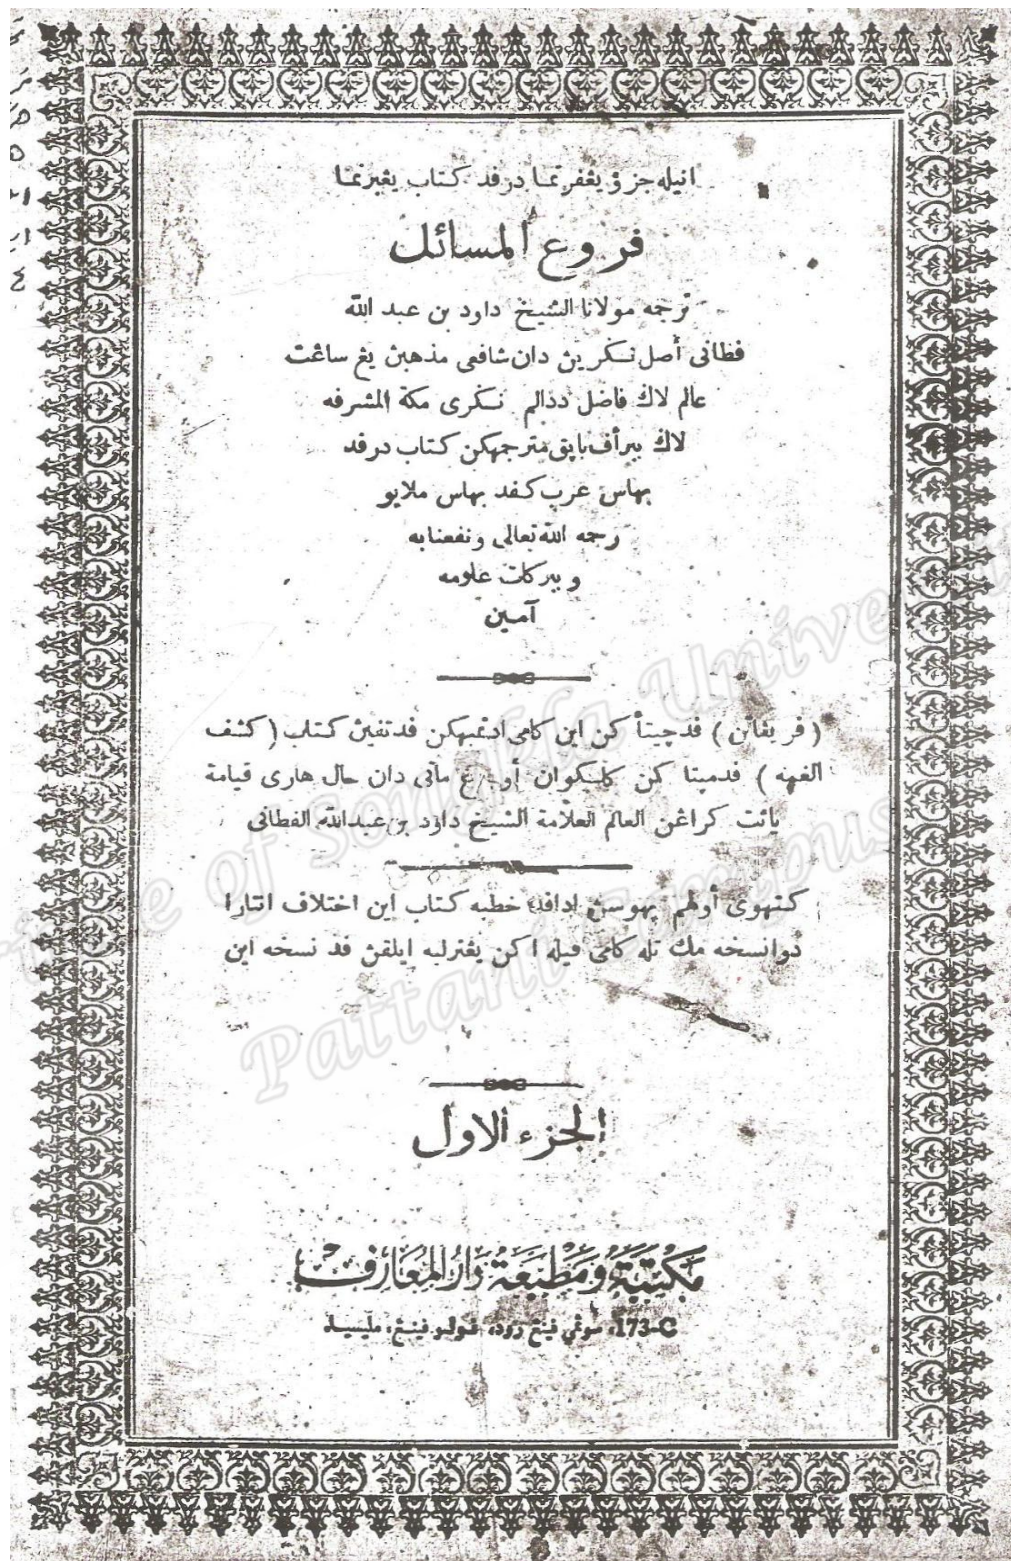 انيله جزؤ يڠفرتما درفد كتاب يڠبرنما
فروع المسائل
ترجمه مولانا الشيخ داود بن عبد الله
فطاني أصل نكرين دان شافعي مذهبن يڠ ساڠت
عالم لاݢ فاضل ددالم نكري مكة المشرفه
لاݢ ببرأف باپق مترجمهكن كتاب درفد
بهاس عرب كفد بهاس ملايو
رحمه الله تعالى ونفعنا به
وببركات علومه
آمين
(فريڠاتن) فدچيتأكن اين كامي ادتمبهكن فدتفين كتاب (كشف
الغمه) فدمپتاكن كلاكوان أورڠ ماتي دان حال هاري قيامة
يائت كراڠن العالم العلامة الشيخ داود بن عبدالله الفطاني
كتهوي أولهم بهوسن ادافله خطبه كتاب اين اختلاف انتارا
دوانسخه مك تله كامي فيله اكن يڠترلبه ايلقن فد نسخه اين
الجزء الاول
مكتبة ومطبعة دار المعارف
173-C، سوڠي فينڠ رود، فولاو فينڠ، مليسيا
Prince of Songkla University
Pattani Campus